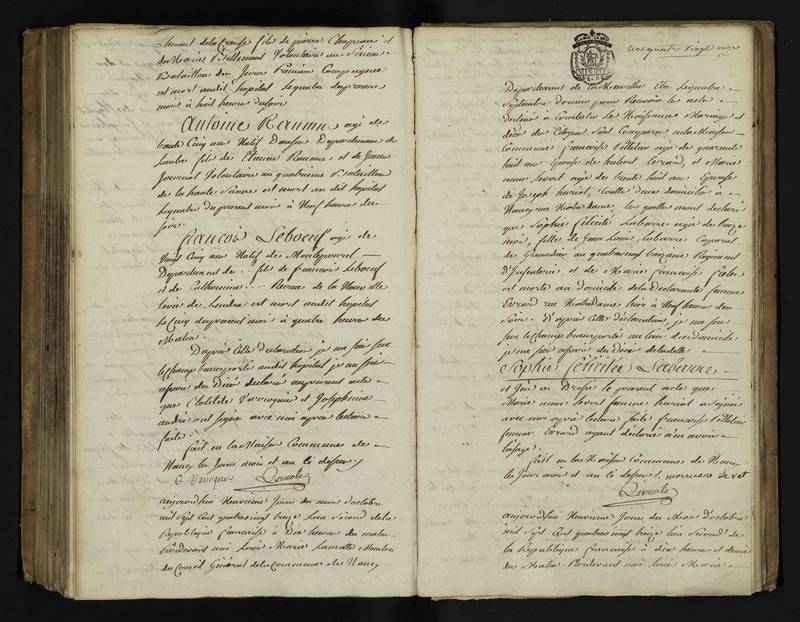 de la Creuse fils de pierre et
de Marie Bellement Volontaire au Sixieme
Bataillon du Jura Premiere Compagnie
est mort audit hopital Lequatre dupresent
mois à huit heures dusoir
Antoine Raumn agé de
vingt Cinq ans Natif Departement de
Laube fils de Etienne Raumn et de Jeanne
Journot Volontaire au quatrieme Bataillon
de la haute Saone est mort au dit hopital
Lequatre dupresent mois à Neuf heures du
soir.
francois Leboeuf agé de
Vingt Cinq ans Natif de
Departement de .. fils de francois Leboeuf
et de Catherine .. Recrue de la Nouvelle
levée de est mort audit hopital
Le Cinq dupresent mois à quatre heures du
Matin.
D'après Cette Declaration je me suis sur
Lechamp transporté audit hopital je me suis
assuré du Décé déclaré au present acte
que Clotilde Vavroquier et Josephine
andré ont signé avec moi après lecture
faite.
fait en la Maison Commune de
Nancy les Jours mois et an ci dessus.
Lamotte
aujourdhui Neuvieme Jour du mois d'octobre
mil Sept Cent quatrevingt treize Lan Second de la
République francaise à Dix heures du matin
Pardevant moi Louis Marie Lamotte Membre
du Conseil Général de la Commune de Nancy
Cent quatre vingt onze
MINUTE
Departement de la Meurthe Elu Lequatre
Septembre dernier pour Recevoir les actes
Destinés à Constater les Naissances Mariages et
décés des Citoyens Sont Comparues en la Maison
Commune francoise Pelletin agée de quarante
huit ans Epouse de hubert Evrard, et Marie
anne Levert agée de trente huit ans Epouse
de Joseph huriot, toutte deux domiciliées à
Nancy rue Notredame, les quelles mont declaré
que Sophie félicité Labarre agée de treize
mois, fille de Jean Louis Labarre Caporal
de Grenadier au quatrevingt treizieme Regiment
d'Infanterie et de Marie francoise
est morte au domicile de la Déclarante femme
Evrard rue Notredame hier à Neuf heures du
Soir. D'après Cette déclaration, je me suis
sur lechamp transporté au lieu du domicile
je me suis assuré du Décé de ladite
Sophie félicitée Labarre
et J'en ai Dressé le present acte que
Marie anne Levert femme huriot a signé
avec moi après lecture faite francoise Pelletin
femme Evrard ayant déclarée n'en avoir
l'usage.
fait en la Maison Commune de Nancy
les Jour mois et an ci dessus.
Lamotte
aujourdhui Neuvieme Jour du Mois d'Octobre
mil Sept Cent quatrevingt treize Lan Second de
la République francaise à dix heures et demie
du Matin Pardevant moi Louis Marie